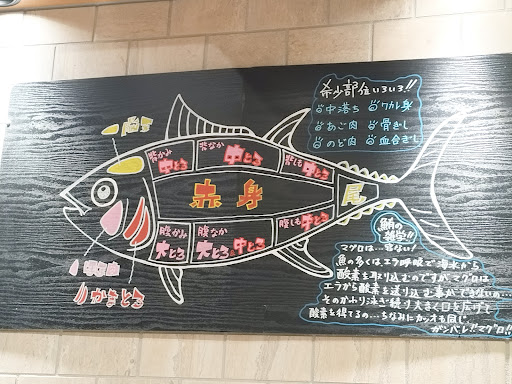 希少部位いろいろ!!
中落ち カル身
あご肉 骨ぎし
のど肉 血合ぎし
脳天
背かみ
中とろ
背なか
中とろ
背しも
中とろ
赤身
尾
腹かみ
大とろ
腹なか
大とろ
中とろ
腹しも
中とろ
かまとろ
鮪の
マグロは…
魚の多くはエラ呼吸で海水から
酸素を取り込むのですがマグロは
エラから酸素を送り込む事ができないの…
そのかわり泳ぎ続け大きく口を広げて
酸素を得てるの…ちなみにカツオも同じ
ガンバレ!!マグロ!!